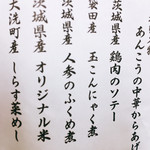 あんこうの中華からあげ
茨城県産 鶏肉のソテー
袋田産 玉こんにゃく煮
茨城県産 人参のふくめ煮
茨城県産 オリジナル米
大洗町産 しらす菜めし